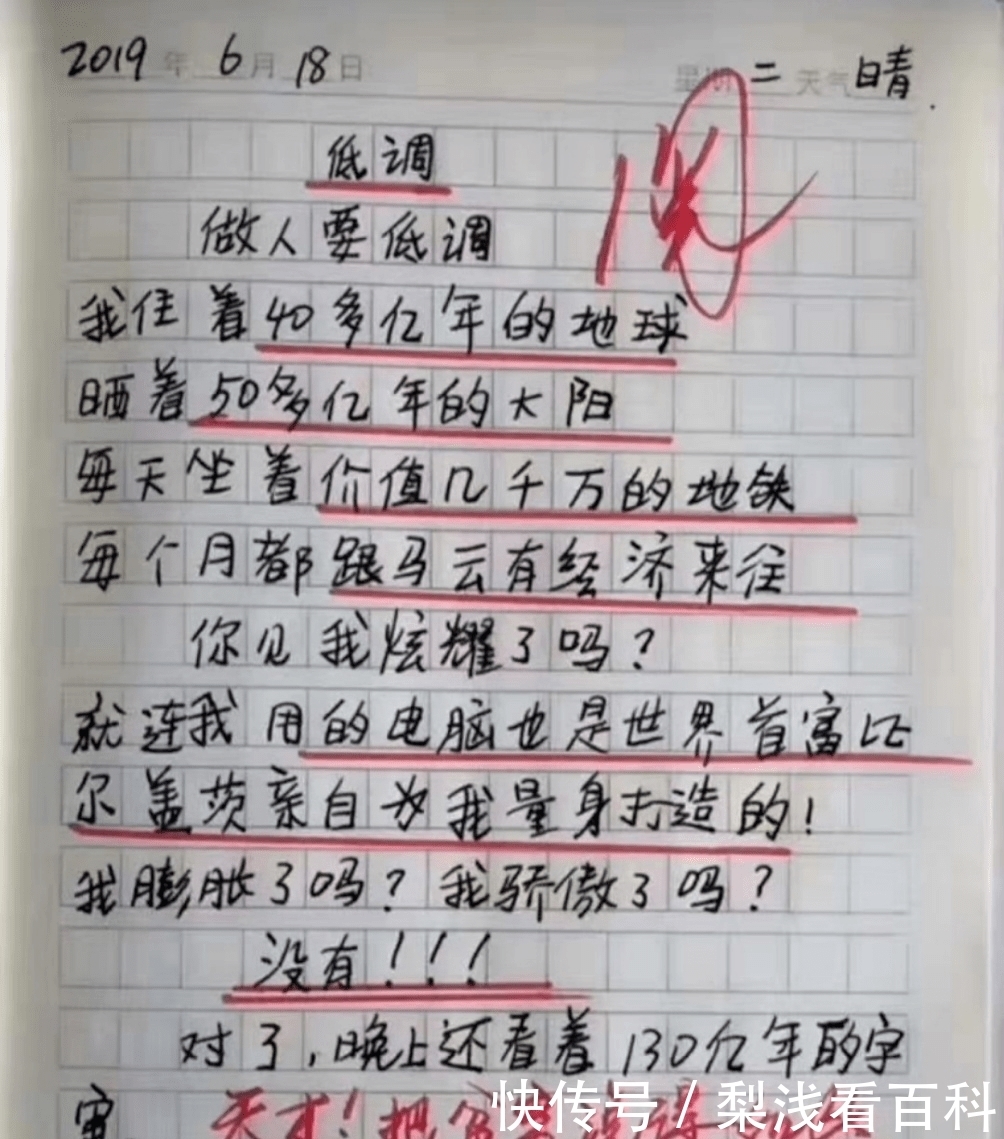 2019年6月18日 星期二 天气晴.
低调
做人要低调
我住着40多亿年的地球
晒着50多亿年的大阳
每天坐着价值几千万的地铁
每个月都跟马云有经济来往
你见我炫耀了吗?
就连我用的电脑也是世界首富比
尔盖茨亲自为我量身打造的!
我膨胀了吗?我骄傲了吗?
没有!!!
对了,晚上还看着130亿年的宇
宙
天才!把
快传号/梨浅看百科